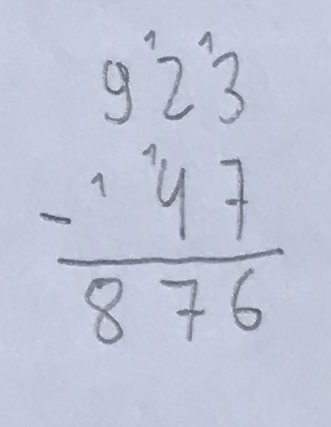 9 ¹2 ¹3
- ¹ ¹4 7
8 7 6